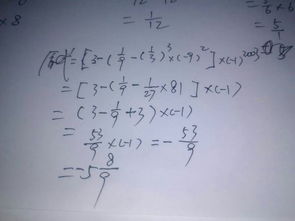 ×8
1/12
5/6 × 6
= 5/1
原式=[3-(1/9-(1/3)³×(-9)²]×(-1)²⁰⁰³
=[3-(1/9-1/27×81]×(-1)
=(3-1/9+3)×(-1)
=53/9×(-1)=-53/9
=-5 8/9